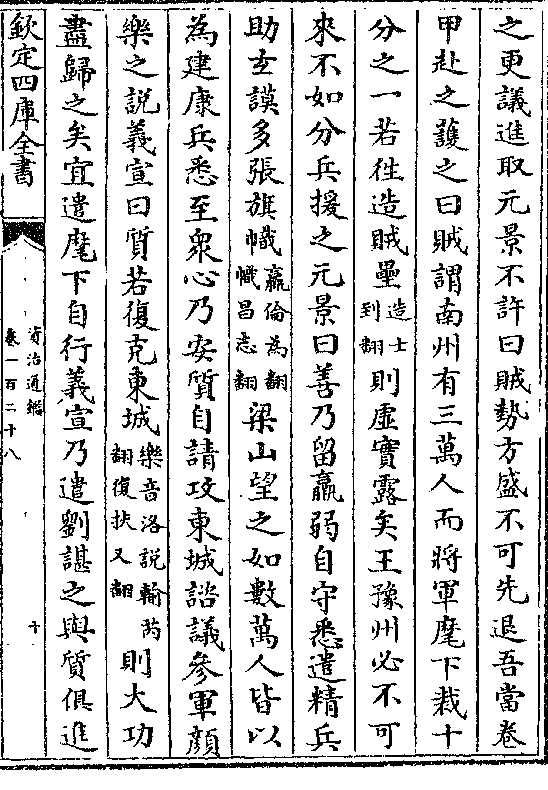 之更議進取元景不許曰賊勢方盛不可先退吾當卷
甲赴之護之曰賊謂南州有三萬人而將軍麾下裁十
分之一若徃造賊壘造士到翻則虛實露矣王豫州必不可
來不如分兵援之元景曰善乃留羸弱自守悉遣精兵
助𤣥謨多張旗幟羸倫為翻幟昌志翻梁山望之如數萬人皆以
為建康兵悉至衆心乃安質自請攻東城諮議參軍顔
樂之說義宣曰質若復克東城樂音洛說輸芮翻復扶又翻則大功
盡歸之矣宜遣麾下自行義宣乃遣劉諶之與質俱進
欽定四庫全書
資治通鑑
卷一百二十八
十